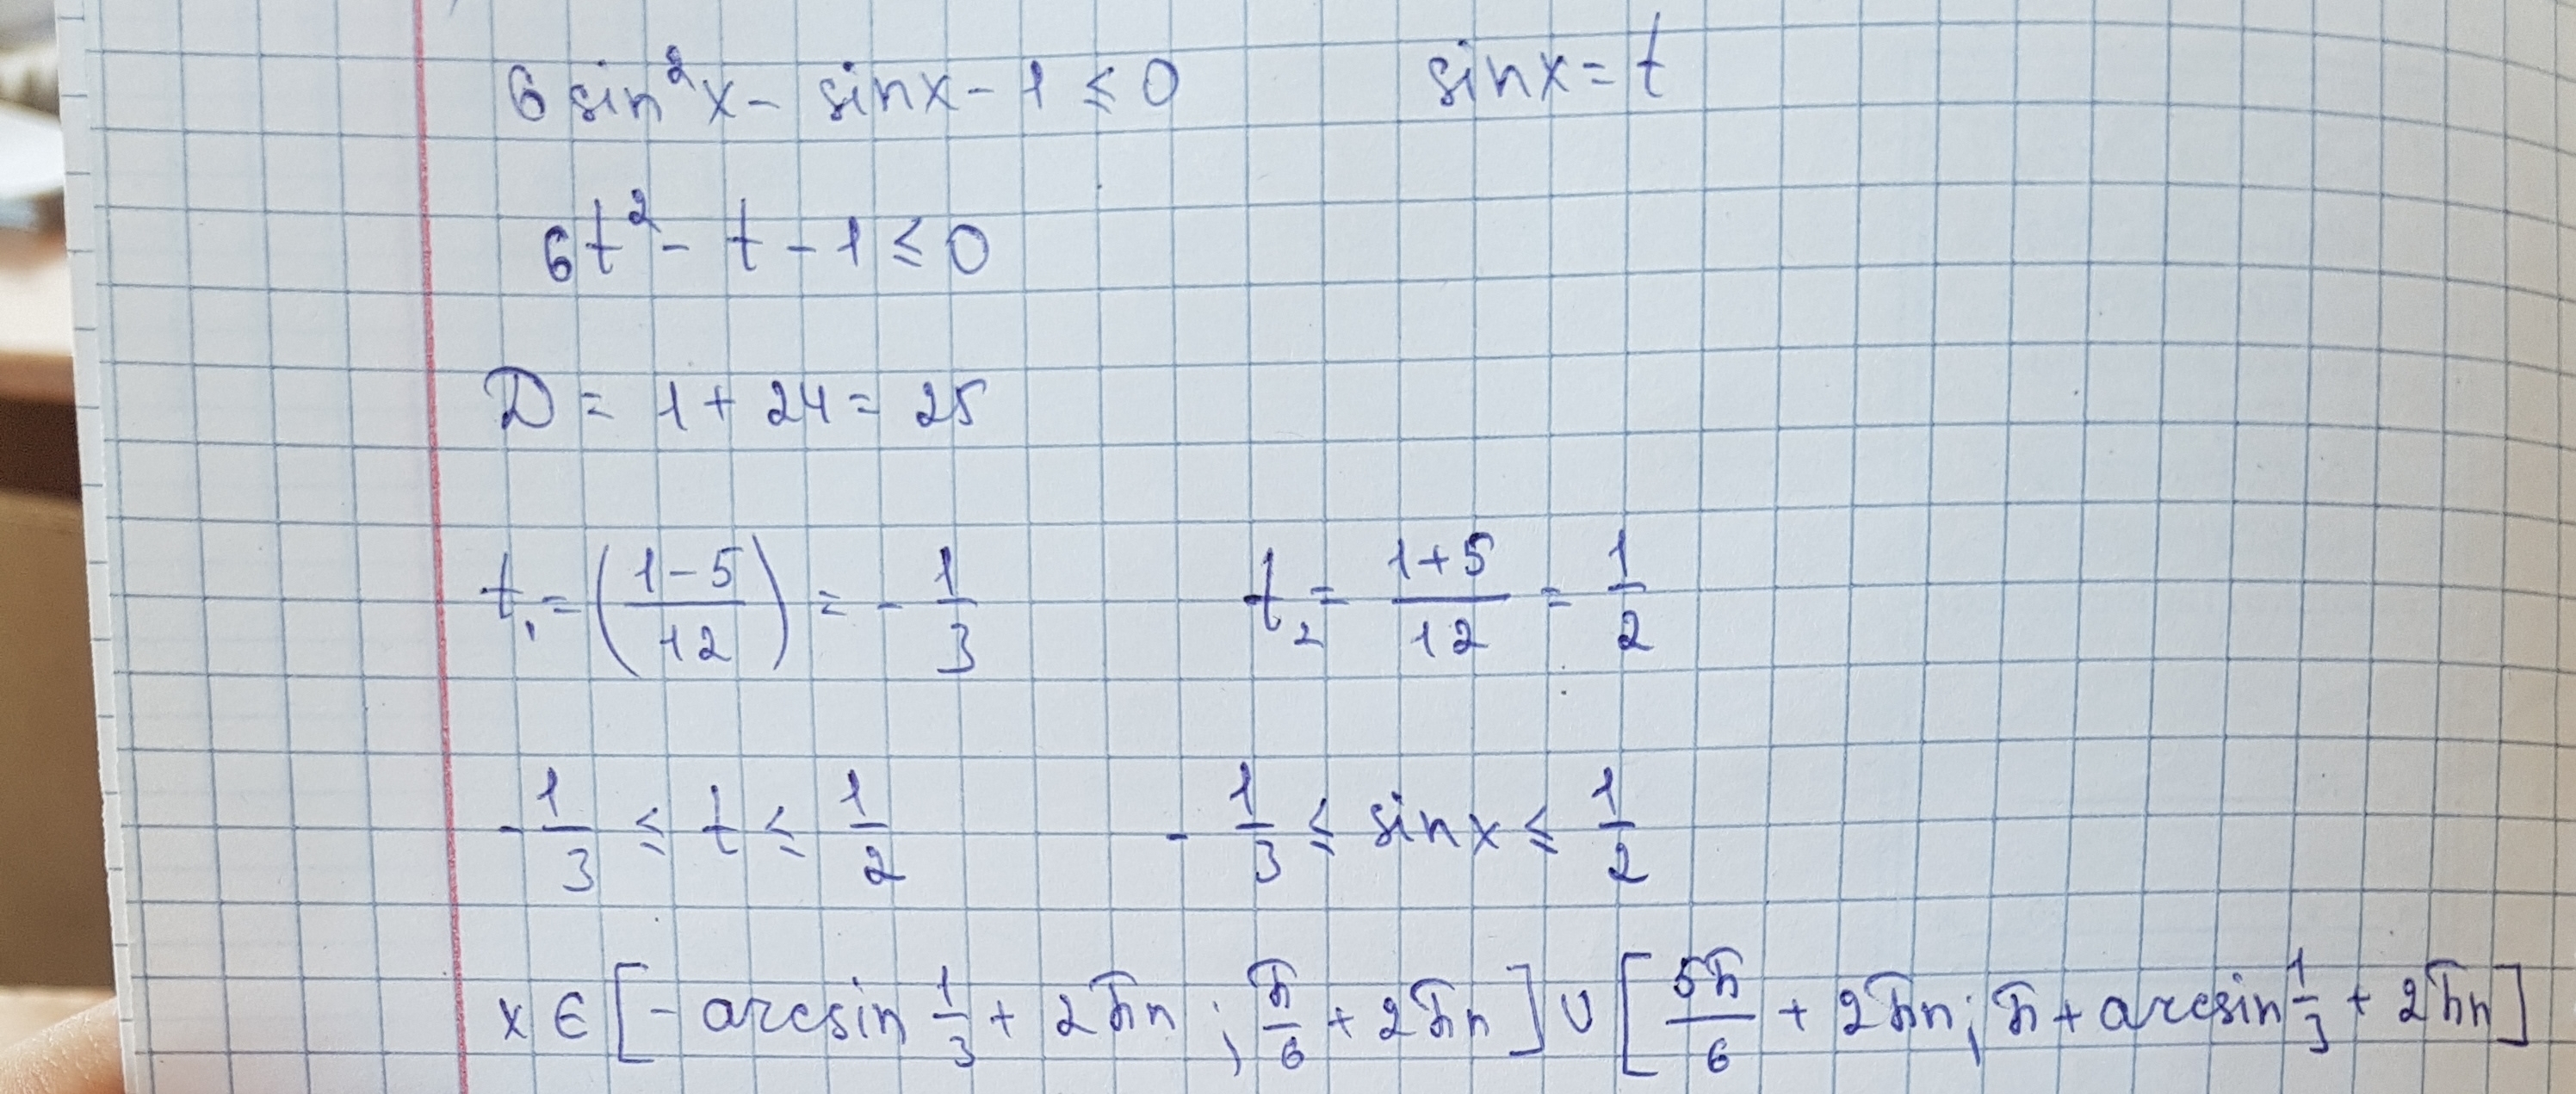 6 sin²x - sinx - 1 ≤ 0 sinx = t
6t² - t - 1 ≤ 0
D = 1 + 24 = 25
t₁ = (1-5/12) = - 1/3 t₂ = 1+5/12 = 1/2
- 1/3 ≤ t ≤ 1/2 - 1/3 ≤ sinx ≤ 1/2
x ∈ [- arcsin 1/3 + 2πn ; π/6 + 2πn] ∪ [5π/6 + 2πn; π + arcsin 1/3 + 2πn]